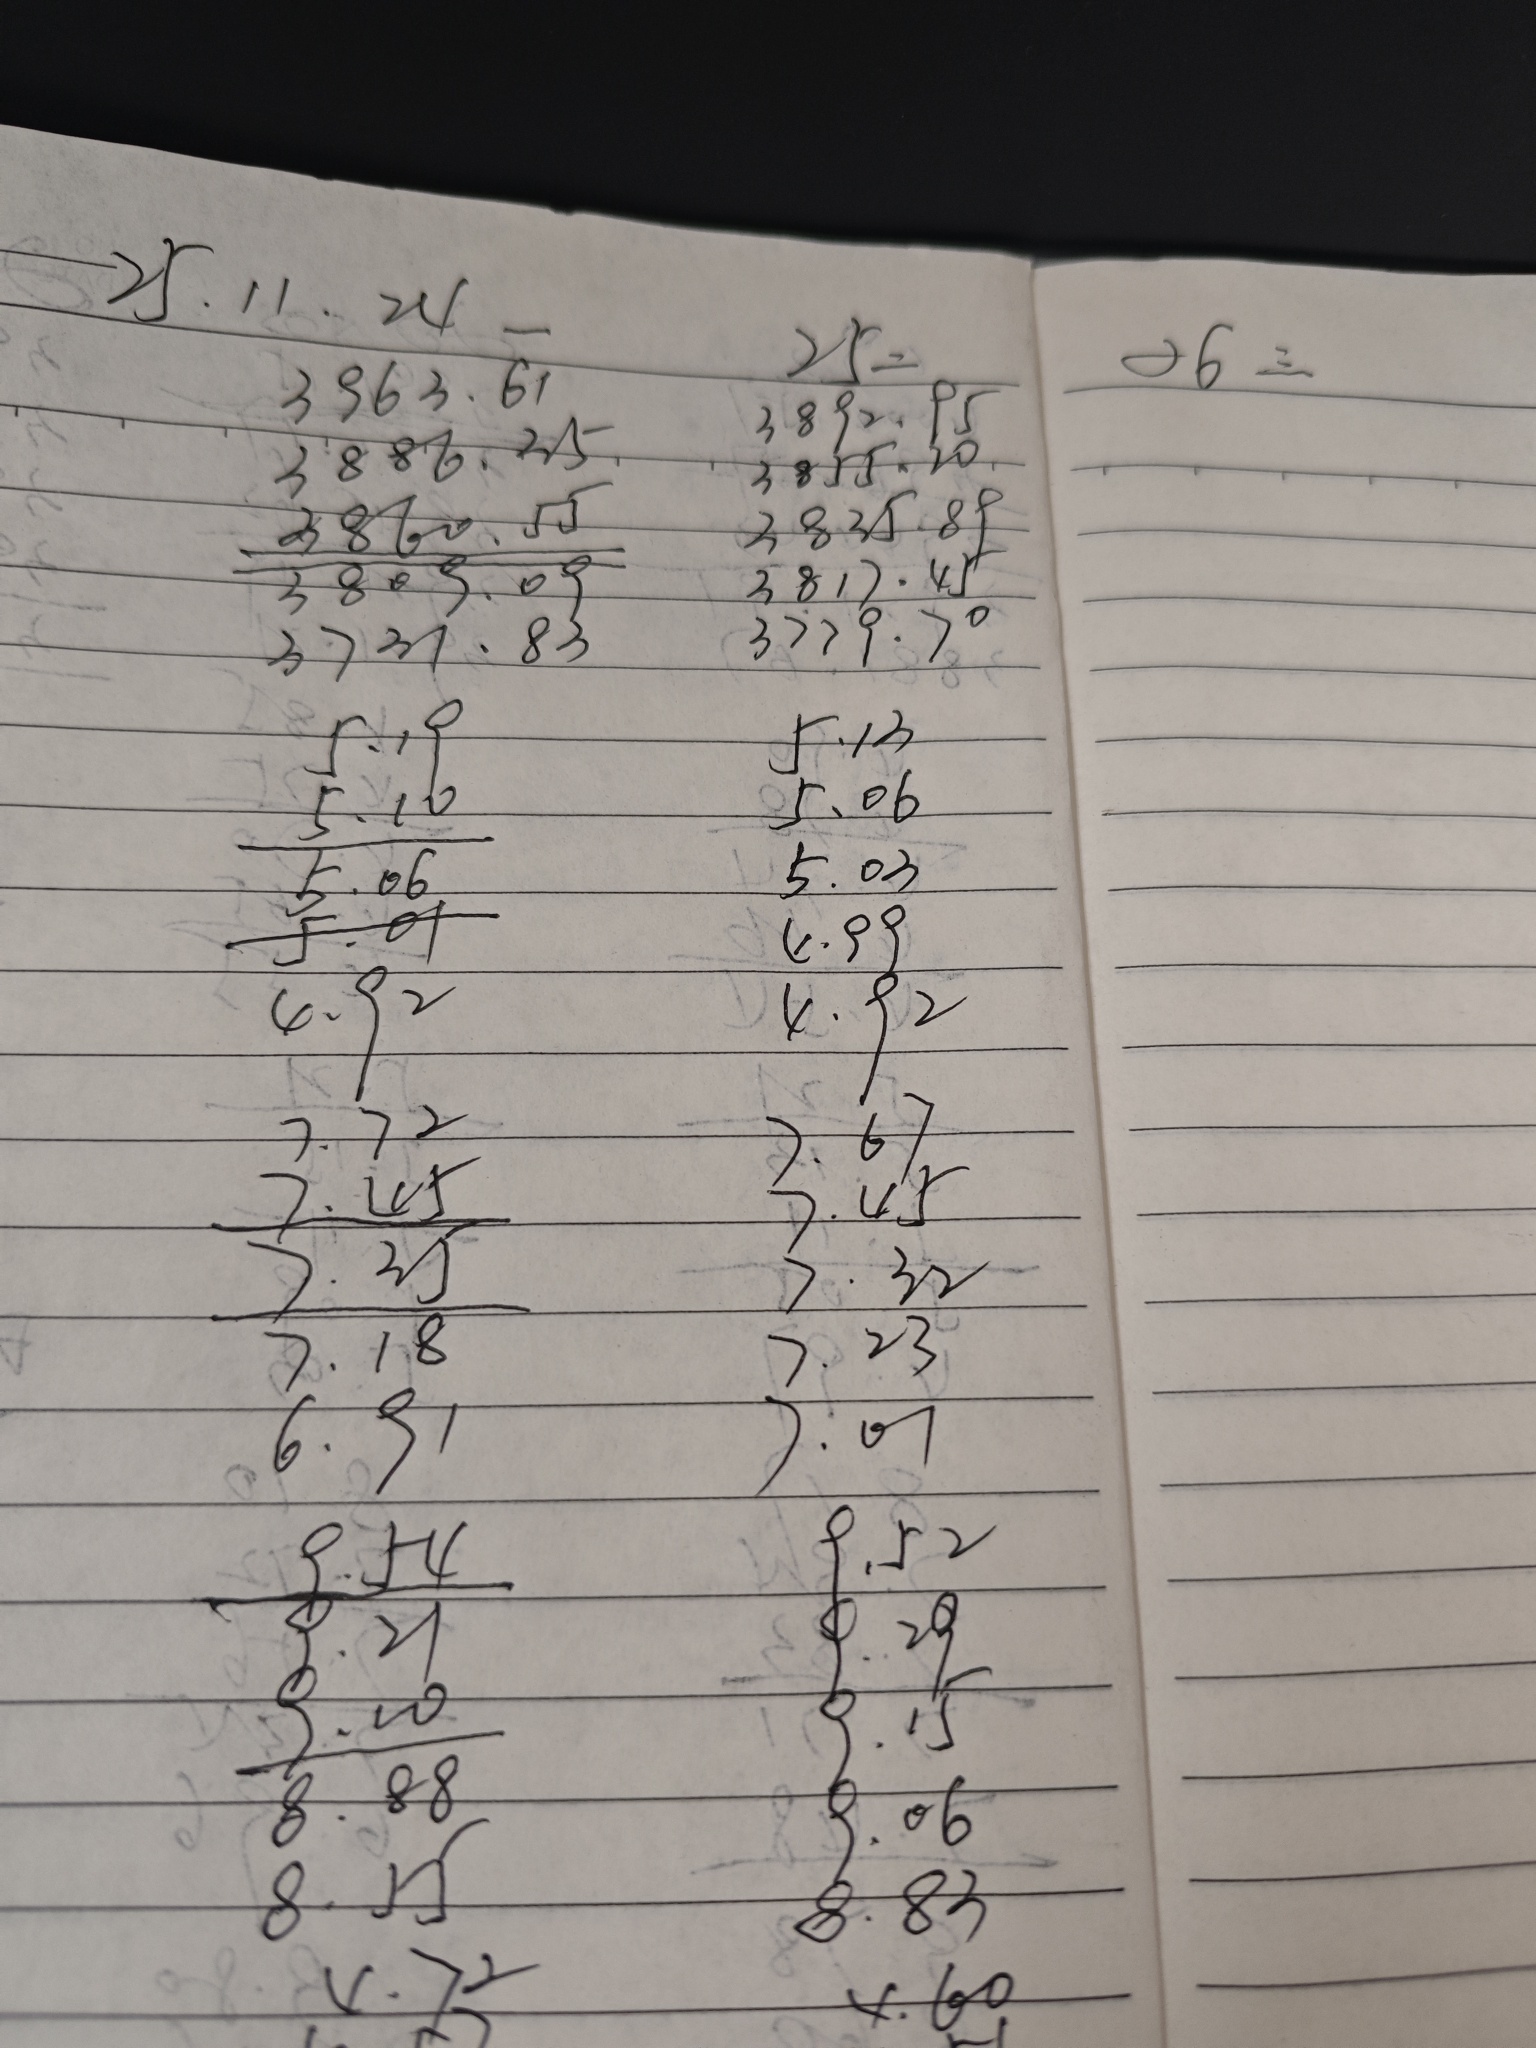 25.11.24 一
3963.61
3886.35
3860.55
3809.09
3731.83
5.19
5.10
5.06
5.01
4.92
7.72
7.45
7.35
7.18
6.91
9.54
9.21
9.10
8.88
8.55
4.72
25 二
3892.95
3855.20
3835.89
3817.45
3779.70
5.13
5.06
5.03
4.99
4.92
7.67
7.45
7.32
7.23
7.01
9.52
9.29
9.15
9.06
8.83
4.60
26 三